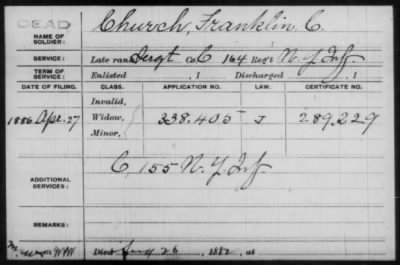 DEAD
NAME OF SOLDIER: Church, Franklin C.
SERVICE: Late rank Sergt Co. C 164 Reg't N.Y. Inf.
TERM OF SERVICE: Enlisted , 1 Discharged , 1
DATE OF FILING. CLASS. APPLICATION NO. LAW. CERTIFICATE NO.
Invalid,
1886 Apr. 27 Widow, 338.405 J 289.229
Minor,
ADDITIONAL SERVICES: C, 155 N.Y. Inf.
REMARKS:
Died 26 , 1882, at